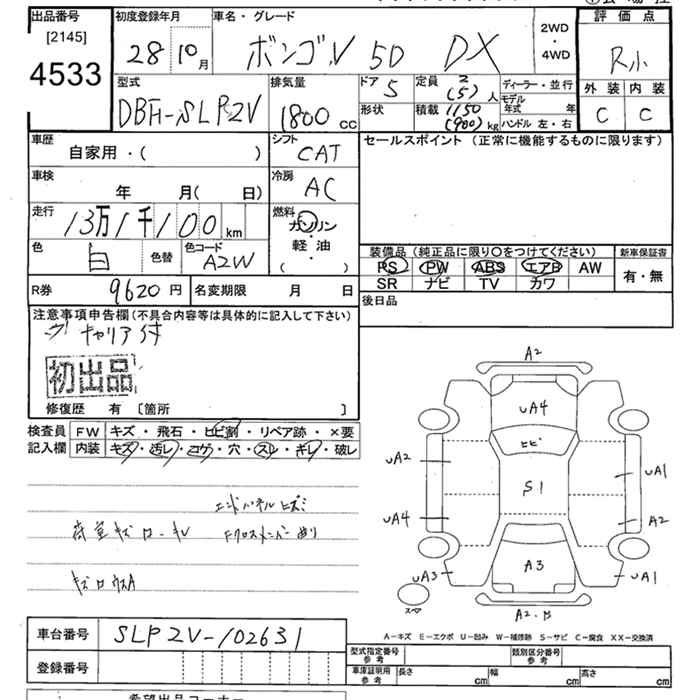 出品番号 初度登録年月 車名・グレード 2WD・4WD 評価点
[2145]
4533 28 10月 ボンゴV 5D DX R小
型式 排気量 ドア 5 定員 2 (5) 人 ディーラー・並行 外装 内装
DBF-SLP2V 1800 cc 形状 積載 1150 (900) kg モデル年式 年 ハンドル 左・右 C C
車歴 シフト セールスポイント (正常に機能するものに限ります)
自家用・( ) CAT
車検 冷房
年 月( 日) AC
走行 燃料
13万1千100 km ガソリン・軽油・( )
色 白 色替 色コード A2W
装備品 (純正品に限り〇をつけてください) 新車保証書
PS PW ABS エアB AW 有・無
SR ナビ TV カワ
R券 9620円 名変期限 月 日 後日品
注意事項申告欄(不具合内容等は具体的に記入して下さい)
キャリア付
初出品
修復歴 有 [箇所 ]
検査員記入欄 FW キズ・飛石・ヒビ割・リペア跡・×要
内装 キズ・汚レ・コゲ・穴・スレ・ギレ・破レ
エンドパネルヒズミ
荷室キズ
A2
UA4
ヒビ
UA2 UA1
S1
UA4 A2
A3
UA3 UA1
スペア
A2
A-キズ E-エクボ U-凹み W-補修跡 S-サビ C-腐食 XX-交換済
車台番号 SLP2V-102631
登録番号
型式指定番号 参考 類別区分番号 参考
車庫証明用 参考 長さ cm 幅 cm 高さ cm
希望出品コーナー